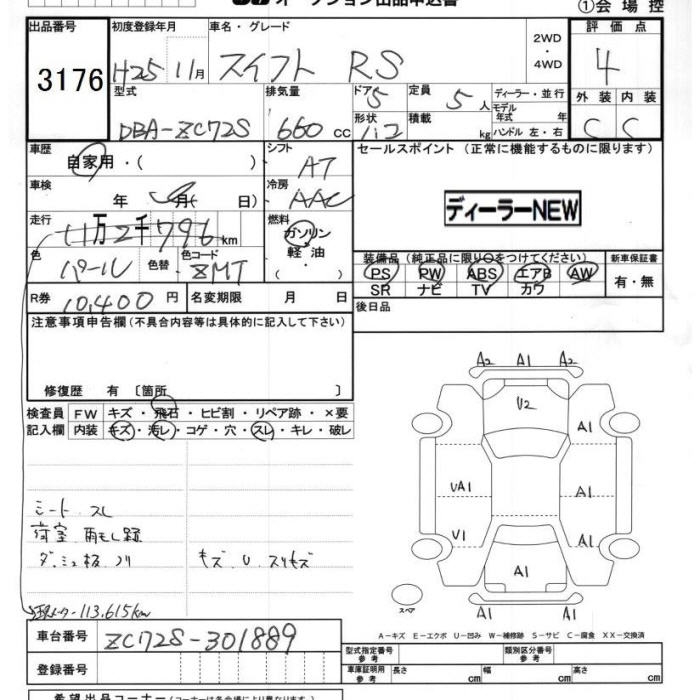 オークション出品申込書
①会場控
出品番号
3176
初度登録年月
H25 11月
車名・グレード
スイフト RS
2WD
・
4WD
評価点
4
外装 内装
C C
型式
DBA-ZC72S
排気量
660 cc
ドア 5
形状
定員 5 人
積載 kg
ディーラー・並行
モデル年式 年
ハンドル 左・右
車歴
自家用・( )
シフト
AT
車検
年 月( 日)
冷房
AAC
走行
11万2千796km
燃料
ガソリン
・
軽油
・
( )
色
パール
色替
色コード
ZMT
R券
10,400 円
名変期限 月 日
セールスポイント (正常に機能するものに限ります)
ディーラーNEW
装備品 (純正品に限り○をつけてください)
PS PW ABS エアB AW
SR ナビ TV カワ
新車保証書
有・無
後日品
注意事項申告欄(不具合内容等は具体的に記入して下さい)
修復歴 有 〔箇所 〕
検査員記入欄
FW キズ・飛石・ヒビ割・リペア跡・×要
内装 キズ・汚レ・コゲ・穴・スレ・キレ・破レ
シート スレ
荷室 雨もレ跡
ダッシュ板 ノリ
キズ U スリキズ
113,615km
A2 A1 A2
U2
A1
UA1
A1
U1
A1
A1
A1 A1
スペア
A-キズ E-エクボ U-凹み W-補修跡 S-サビ C-腐食 XX-交換済
車台番号
ZC72S-301889
登録番号
型式指定番号
参考
類別区分番号
参考
車庫証明用
参考
長さ cm
幅 cm
高さ cm
希望出品コーナー(コーナーは各会場により異なります)